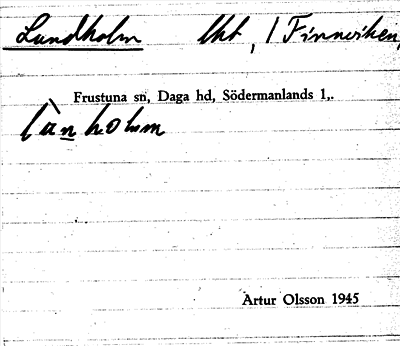 Lundholm lht, i Finnviken,
Frustuna sn, Daga hd, Södermanlands l,.
lànholm
Artur Olsson 1945